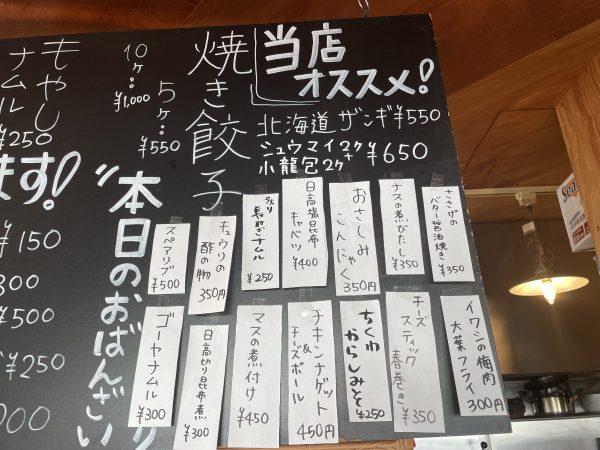 当店
オススメ!
北海道ザンギ¥550
シュウマイ2ケ+
小龍包2ケ
¥650
焼き餃子
5ケ…
¥550
10ケ…
¥1,000
もやし
ナムル
¥250
ます!
本日のおばんざい
¥150
300
¥500
¥250
000
ささげの
バター醤油焼き
¥350
ナスの煮びたし
¥350
おさしみ
こんにゃく
350円
日高塩昆布
キャベツ
¥400
炙り
長ねぎナムル
¥250
キュウリの
酢の物
350円
スペアリブ
¥500
イワシの梅肉
大葉フライ
300円
チーズ
スティック
春巻き
¥350
ちくわ
からしみそ
¥250
チキンナゲット
&
チーズボール
450円
マスの煮付け
¥450
日高切り昆布煮
¥300
ゴーヤナムル
¥300